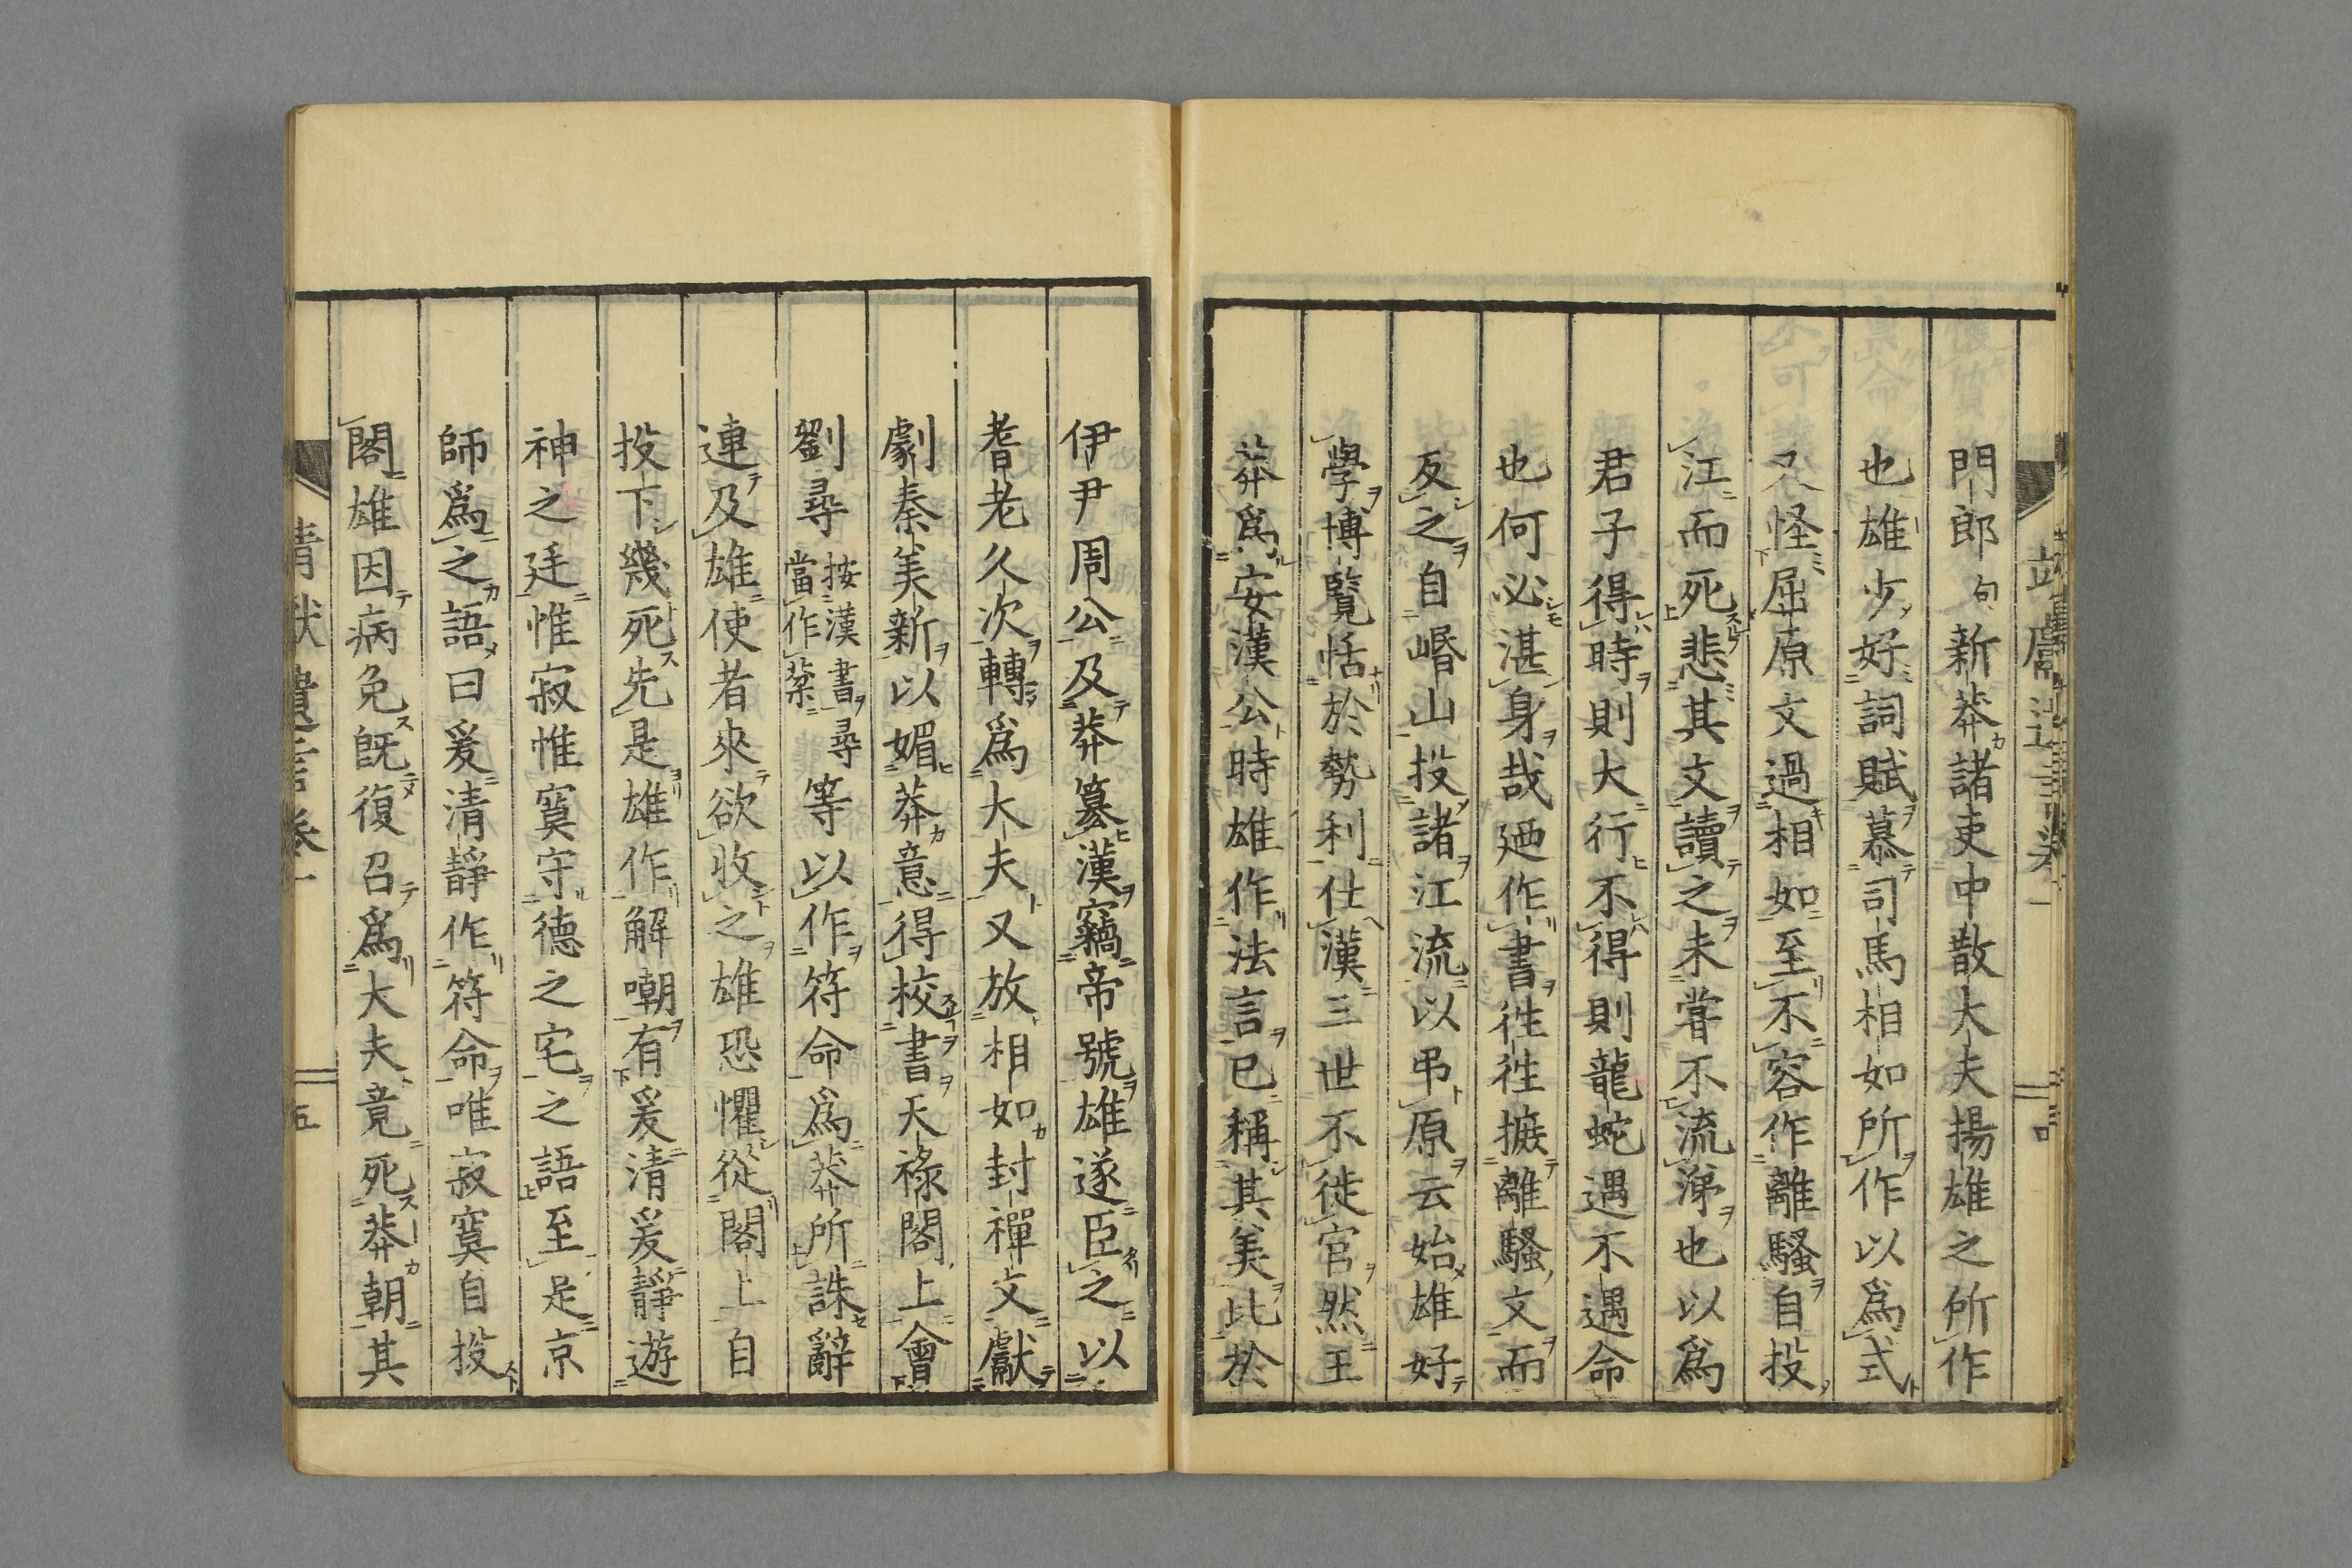 門郎句新莽諸吏中散大夫揚雄之所作
也雄少好詞賦慕司馬相如所作以爲式
又怪屈原文過相如至不容作離騷自投
江而死悲其文讀之未甞不流涕也以爲
君子得時則大行不得則龍蛇遇不遇命
也何必湛身哉廼作書徃徃摭離騷文而
反之自㟭山投諸江流以弔原云始雄好
學博覽恬於勢利仕漢三世不徙官然王
莽爲安漢公時雄作法言已稱其美比於
伊尹周公及莽篡漢竊帝號雄遂臣之以
耆老久次轉爲大夫又放相如封禪文獻
劇秦美新以媚莽意得校書天祿閣上會
劉尋按漢書尋當作棻等以作符命爲莽所誅辭
連及雄使者來欲收之雄恐懼從閣上自
投下幾死先是雄作解嘲有爰清爰靜遊
神之廷惟寂惟寞守德之宅之語至是京
師爲之語曰爰清靜作符命唯寂寞自投
閣雄因病免旣復召爲大夫竟死莽朝其
靖獻遺言卷一
五